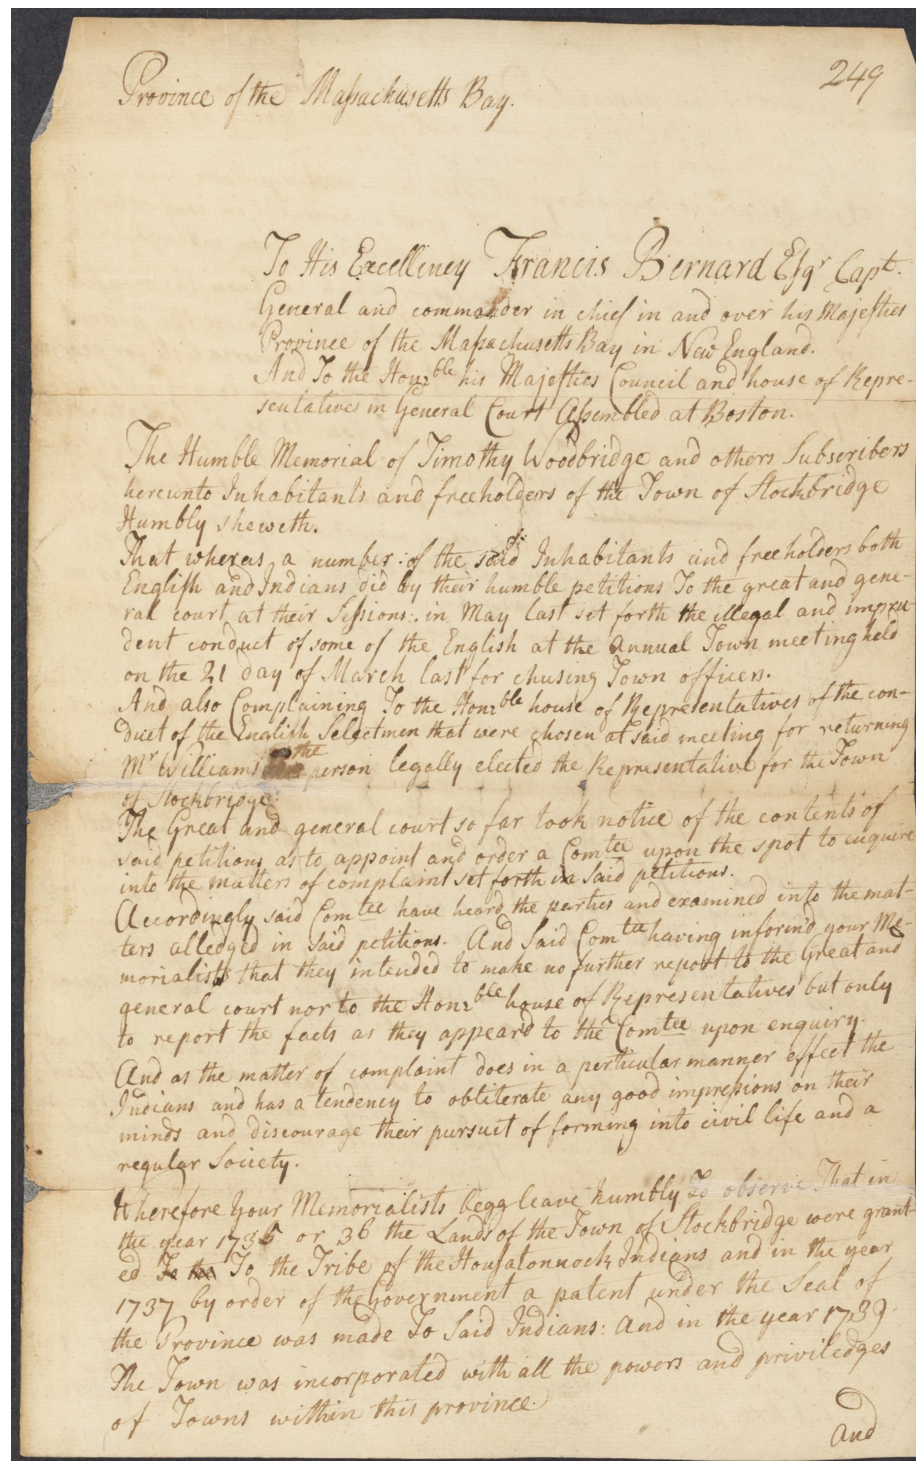 249
Province of the Massachusetts Bay.
To His Excellency Francis Bernard Esqr Capt.
General and commander in chief in and over his Majesties
Province of the Massachusetts Bay in New England.
And To the Honrble his Majesties Council and house of Repre-
sentatives in General Court Assembled at Boston.
The Humble Memorial of Timothy Woodbridge and others Subscribers
hereunto Inhabitants and freeholders of the Town of Stockbridge
Humbly sheweth.
That whereas a number of the said Inhabitants and freeholders both
English and Indians did by their humble petitions To the great and gene-
ral court at their Sessions in May last set forth the illegal and impru-
dent conduct of some of the English at the annual Town meeting held
on the 21 day of March last for chusing Town officers.
And also Complaining To the Honrble house of Representatives of the con-
duct of the English Selectmen that were chosen at said meeting for returning
Mr Williams the person legally elected the Representative for the Town
of Stockbridge.
The Great and general court so far took notice of the contents of
said petitions as to appoint and order a Comtee upon the spot to enquire
into the matters of complaint set forth in said petitions.
Accordingly said Comtee have heard the parties and examined into the mat-
ters alledged in said petitions. And Said Comtee having inform'd your Me-
morialists that they intended to make no further report to the Great and
general court nor to the Honrble house of Representatives but only
to report the facts as they appeard to the Comtee upon enquiry.
And as the matter of complaint does in a perticular manner effect the
Indians and has a tendency to obliterate any good impressions on their
minds and discourage their pursuit of forming into civil life and a
regular Society.
Wherefore Your Memorialists begg leave humbly To observe That in
the year 1735 or 36 the Lands of the Town of Stockbridge were grant-
ed To the To the Tribe of the Housatonnock Indians and in the year
1737 by order of the Government a patent under the Seal of
the Province was made To Said Indians: And in the year 1739.
The Town was incorporated with all the powers and priviledges
of Towns within this province.
And